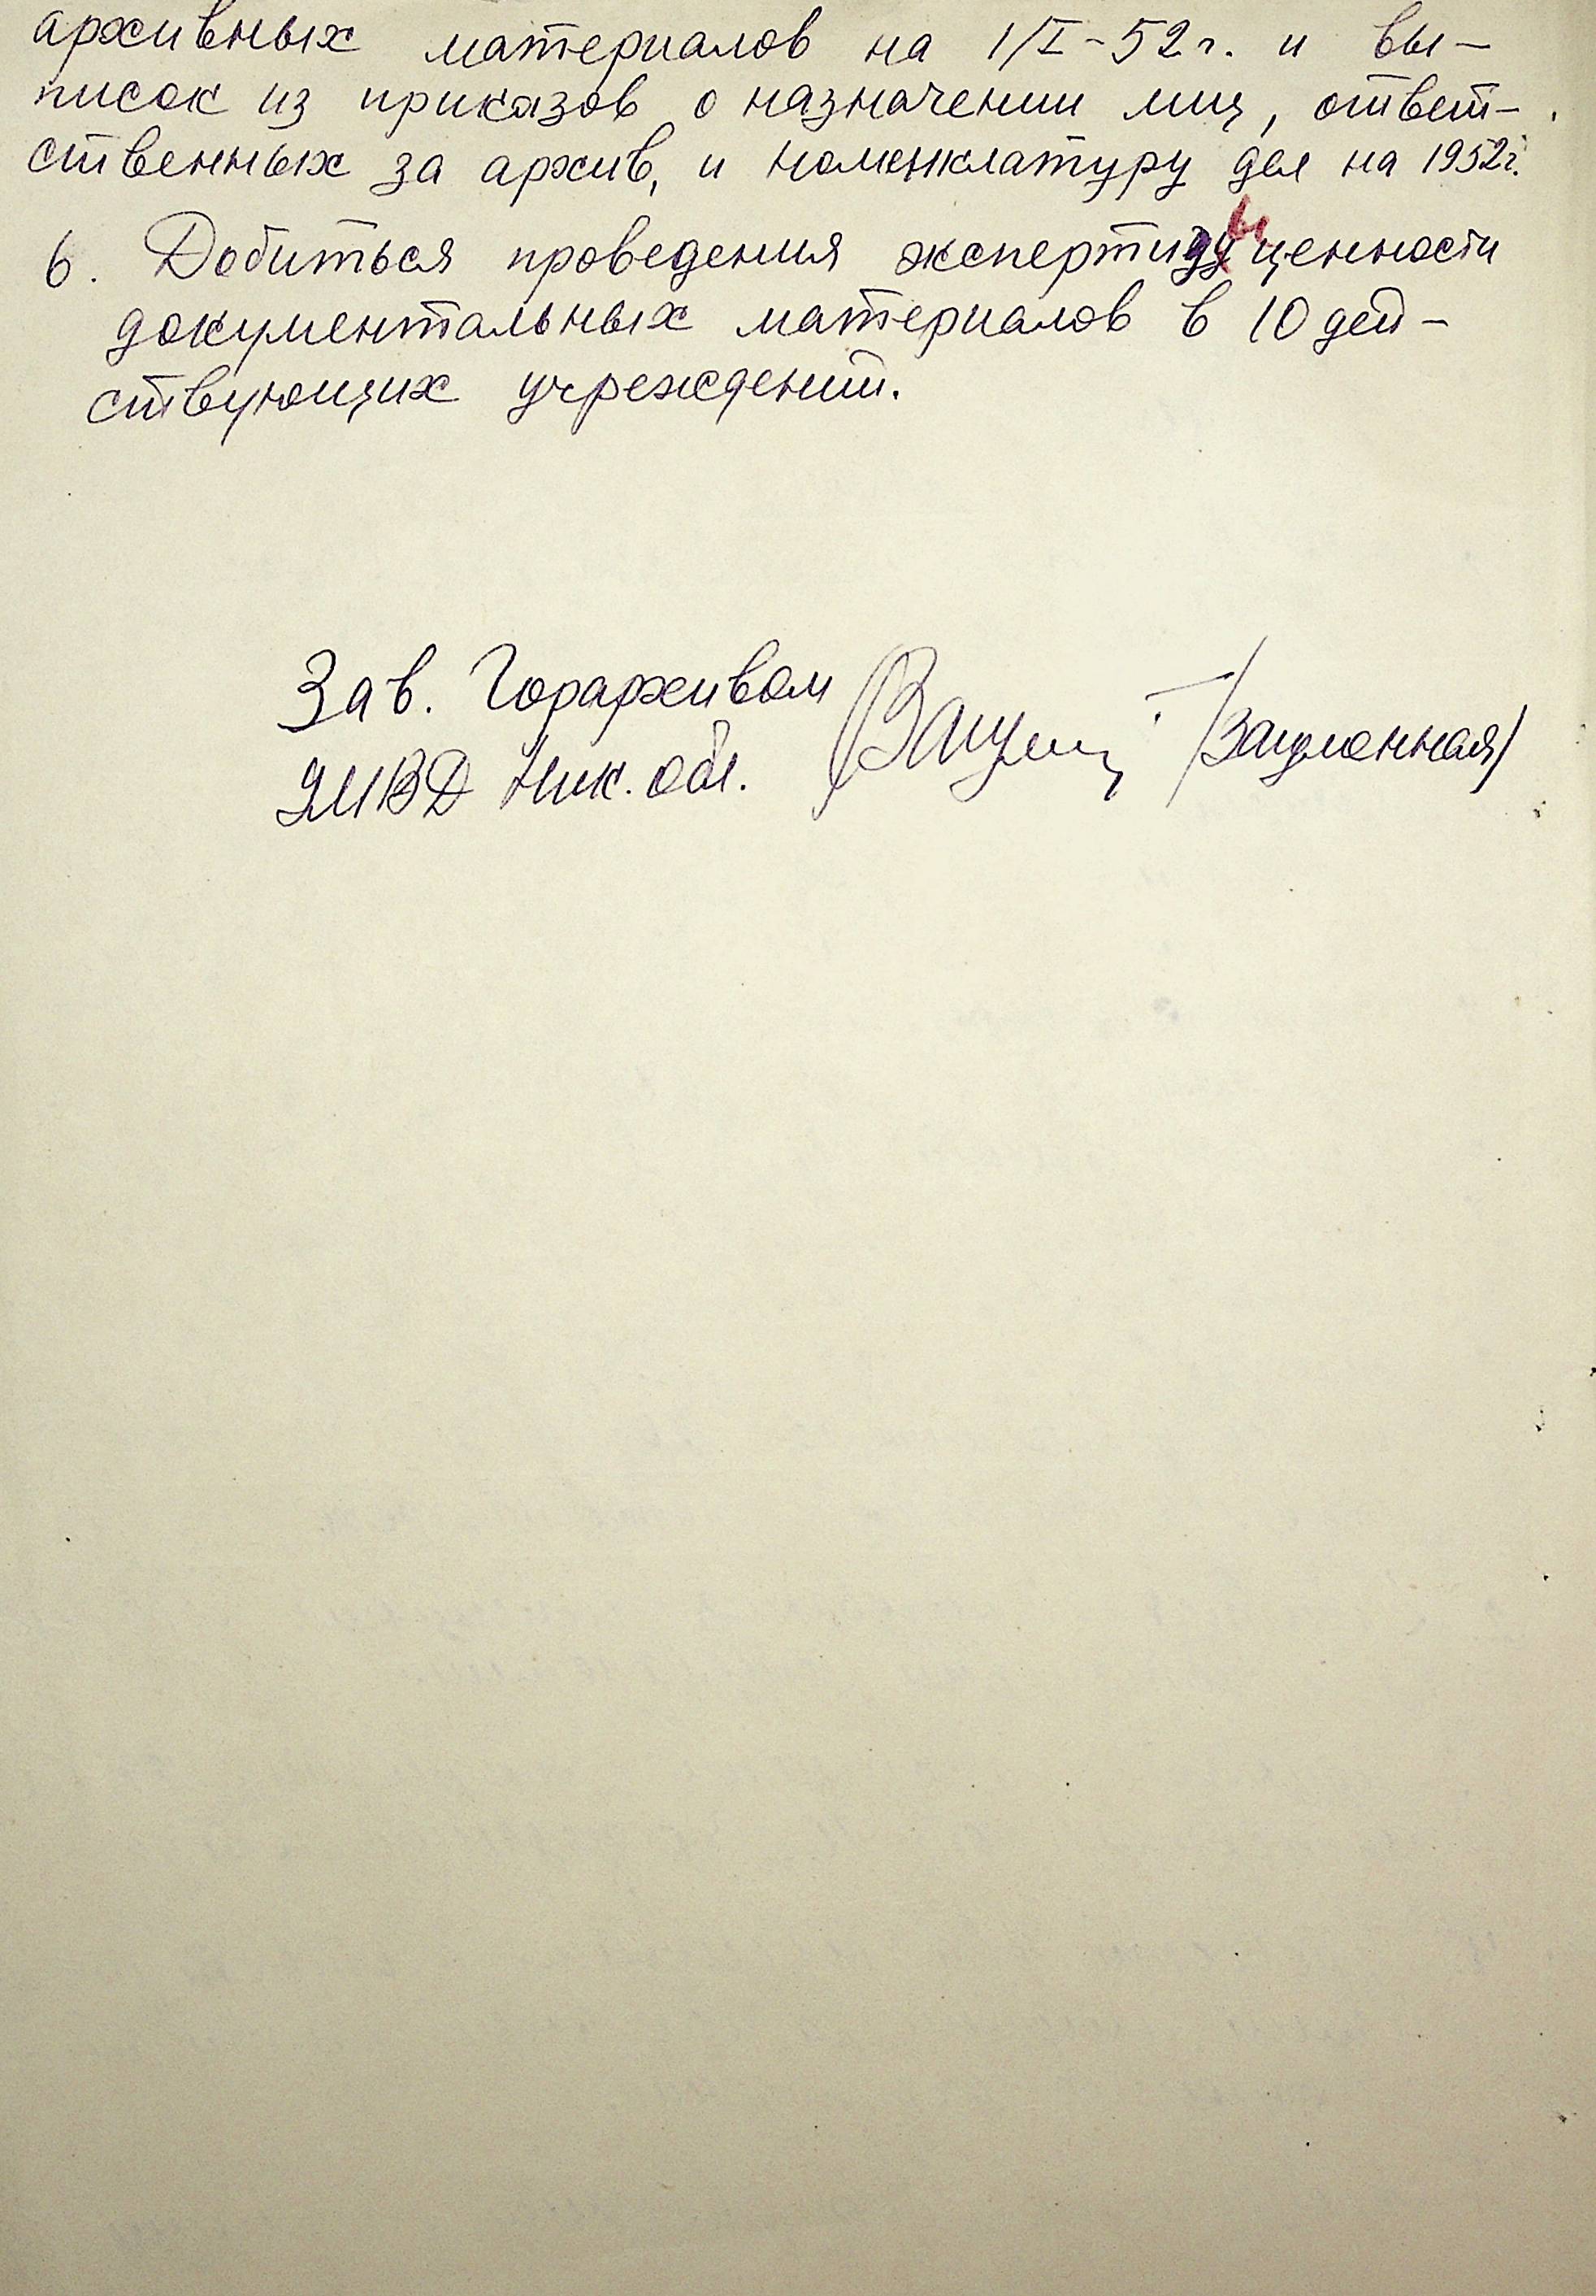 архивных материалов на 1/I-52 г. и вы-
писок из приказов о назначении лиц, ответ-
ственных за архив, и номенклатуру дел на 1952 г.
6. Добиться проведения экспертизы ценности
документальных материалов в 10 дей-
ствующих учреждений.
Зав. Горархивом
УМВД Ник. обл.